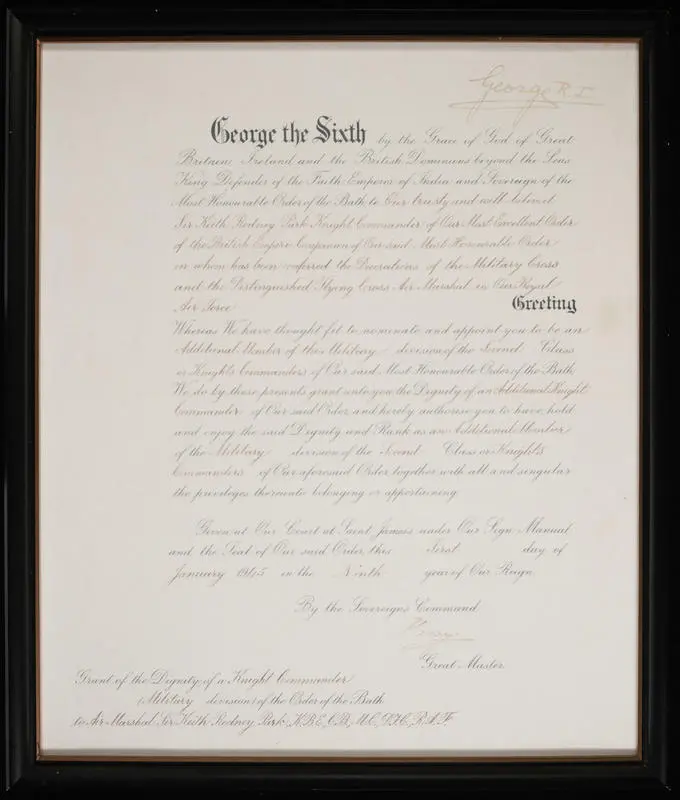 George R I
George the Sixth by the Grace of God of Great
Britain Ireland and the British Dominions beyond the Seas
King Defender of the Faith Emperor of India and Sovereign of the
Most Honourable Order of the Bath to Our trusty and well beloved
Sir Keith Rodney Park Knight Commander of Our Most Excellent Order
of the British Empire Companion of Our said Most Honourable Order
on whom has been conferred the Decorations of the Military Cross
and the Distinguished Flying Cross Air Marshal in Our Royal
Air Force Greeting
Whereas We have thought fit to nominate and appoint you to be an
Additional Member of the Military division of the Second Class
or Knights Commanders of Our said Most Honourable Order of the Bath
We do by these presents grant unto you the Dignity of an Additional Knight
Commander of Our said Order and hereby authorise you to have hold
and enjoy the said Dignity and Rank as an Additional Member
of the Military division of the Second Class or Knights
Commanders of Our aforesaid Order together with all and singular
the privileges thereunto belonging or appertaining
Given at Our Court at Saint James's under Our Sign Manual
and the Seal of Our said Order this First day of
January 1945 in the Ninth year of Our Reign
By the Sovereign's Command
Great Master
Grant of the Dignity of a Knight Commander
(Military division) of the Order of the Bath
to Air Marshal Sir Keith Rodney Park, K.B.E., C.B., M.C., D.F.C., R.A.F.